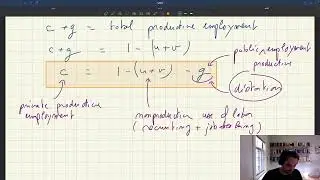 c + g = total productive employment
c + g = 1 - (u+v)
c = 1 - (u+v) - g
public employment
productive
distortion
private productive
employment
nonproductive use of labor
(recruiting + job searching)